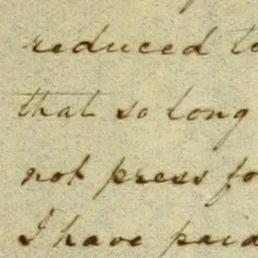 reduced to
that so long
not press fo
I have paid